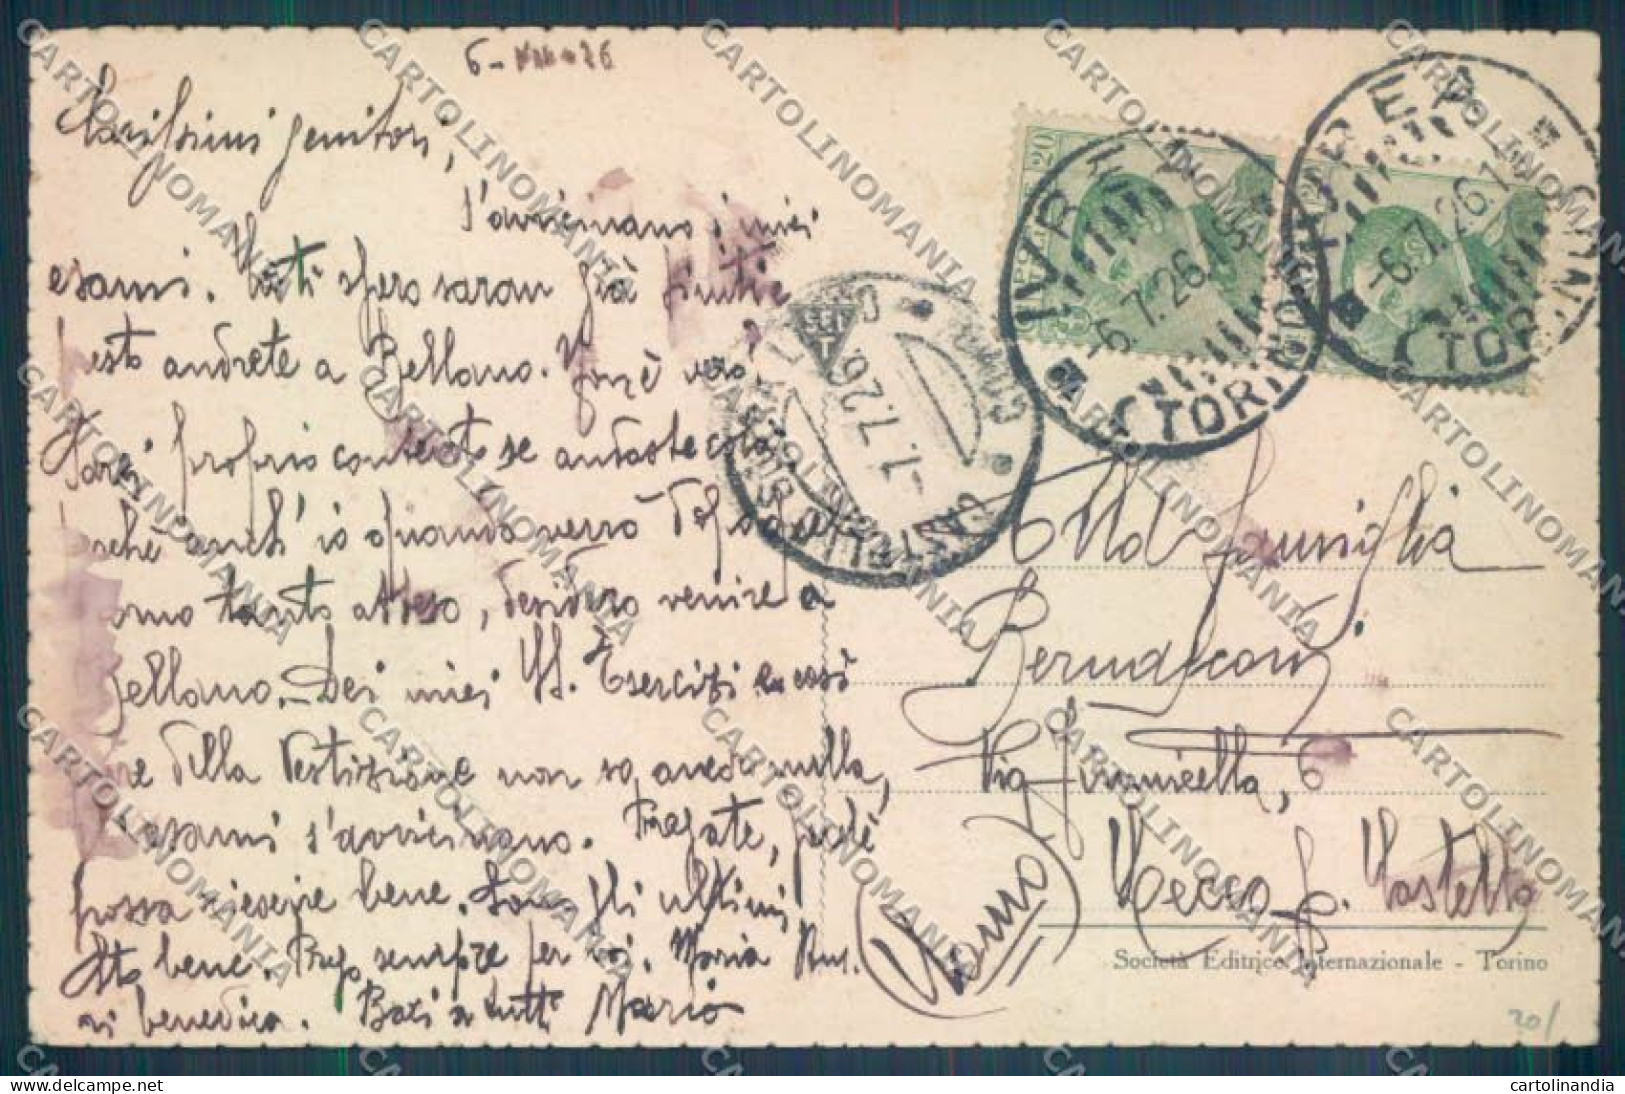 6-VII-26
Carissimi genitori,
s'avvicinano i miei
esami. Voti spero saran già finiti e
presto andrete a Bellano. Non è vero?
Sarei proprio contento se andaste colà
perchè anch'io quando verrò
tanto atteso, desidero venire a
Bellano. Dei miei SS. Esercizi e così
pure della Vestizione non so ancora nulla,
esami s'avvicinano. Pregate, perchè
possa riescire bene. Sono gli ultimi
Sto bene. Prego sempre per voi. Maria Aus.
vi benedica. Baci a tutti Mario
Alla Famiglia
Bernasconi
Via 6
Lecco p. Castello
(Como)
IVREA
-6.7.26.
(TORINO)
IVREA
-6.7.26.1
(TORINO)
CASTELLO SOPRA LECCO
-7.7.26
Società Editrice Internazionale - Torino
20/
CARTOLINOMANIA
cartolinandia